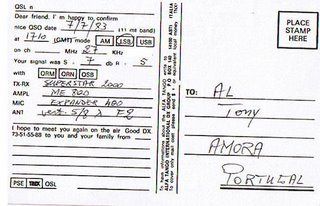 QSL n
Dear friend. I'm happy to confirm
nice QSO date 7/7/83 (11 mt band)
at 1710 (GMT) mode AM LSB USB
on ch MHz 27 KHz
Your signal was S - 7 db R - 5
with QRM QRN QSB
TX-RX SUPERSTAR 2000
AMPL ME 800
MIC EXPANDER 400
ANT 5/8 λ
I hope to meet you again on the air Good DX
73-51-55-88 to you and your family from
PSE TNX QSL
ALFA TANGO INTERNATIONAL DX GROUP
PLACE
STAMP
HERE
TO: AL
Tony
AMORA
PORTUGAL